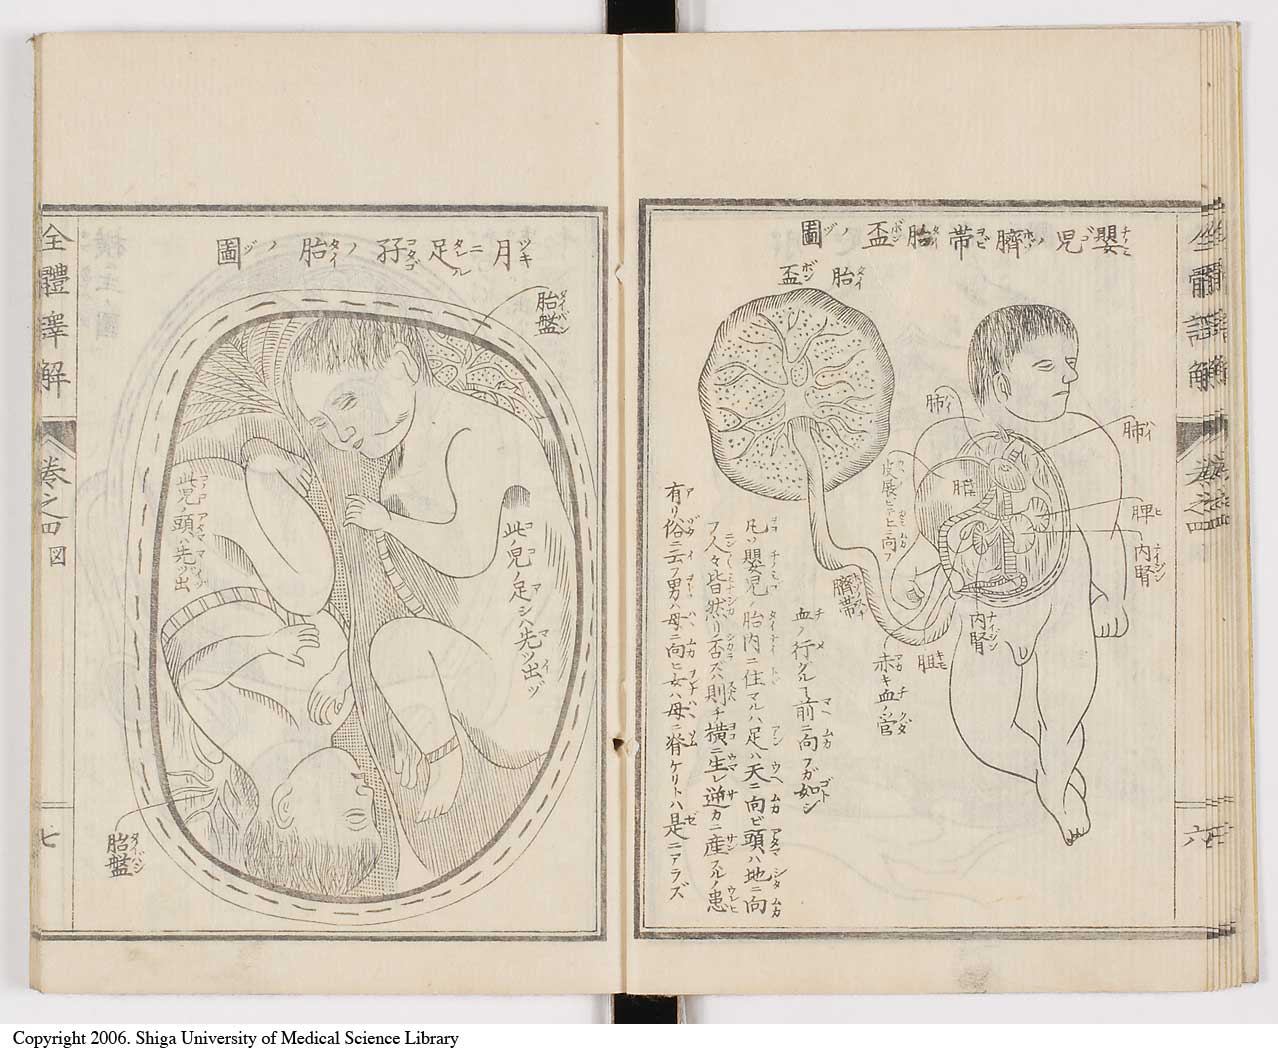 嬰児ノ臍帯胎盃ノ圖
胎盃
肺
肺
脾
内腎
内腎
臍帯
赤キ血ノ管
血ノ行グルヿ前ニ向フガ如シ
凡ソ嬰児ノ胎内ニ住マルハ足ハ天ニ向ヒ頭ハ地ニ向
フ人々皆然リ否ズハ則チ横ニ生レ逆カニ産スルノ患
有リ俗ニ云フ男ハ母ニ向ヒ女ハ母ニ脊ケリトハ是ニアラズ
六
月ニ足タル孖ノ胎ノ圖
胎盤
此児ノ足シハ先ツ出ヅ
此児ノ頭ハ先ツ出
胎盤
全體譯解
巻之四 図
七
Copyright 2006. Shiga University of Medical Science Library